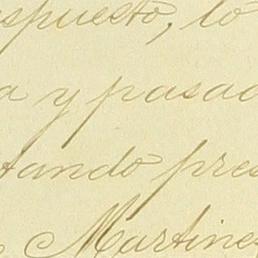 spuesto, lo
a y pasad
tando pres
Martinez